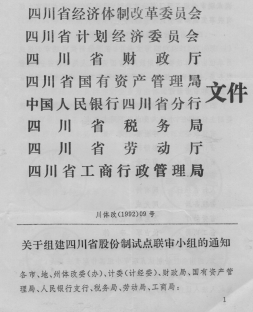 四川省经济体制改革委员会
四川省计划经济委员会
四川省财政厅
四川省国有资产管理局
中国人民银行四川省分行
四川省税务局
四川省劳动厅
四川省工商行政管理局
文件
川体改(1992)09号
关于组建四川省股份制试点联审小组的通知
各市、地、州体改委(办)、计委(计经委)、财政局、国有资产管
理局、人民银行支行、税务局、劳动局、工商局:
1